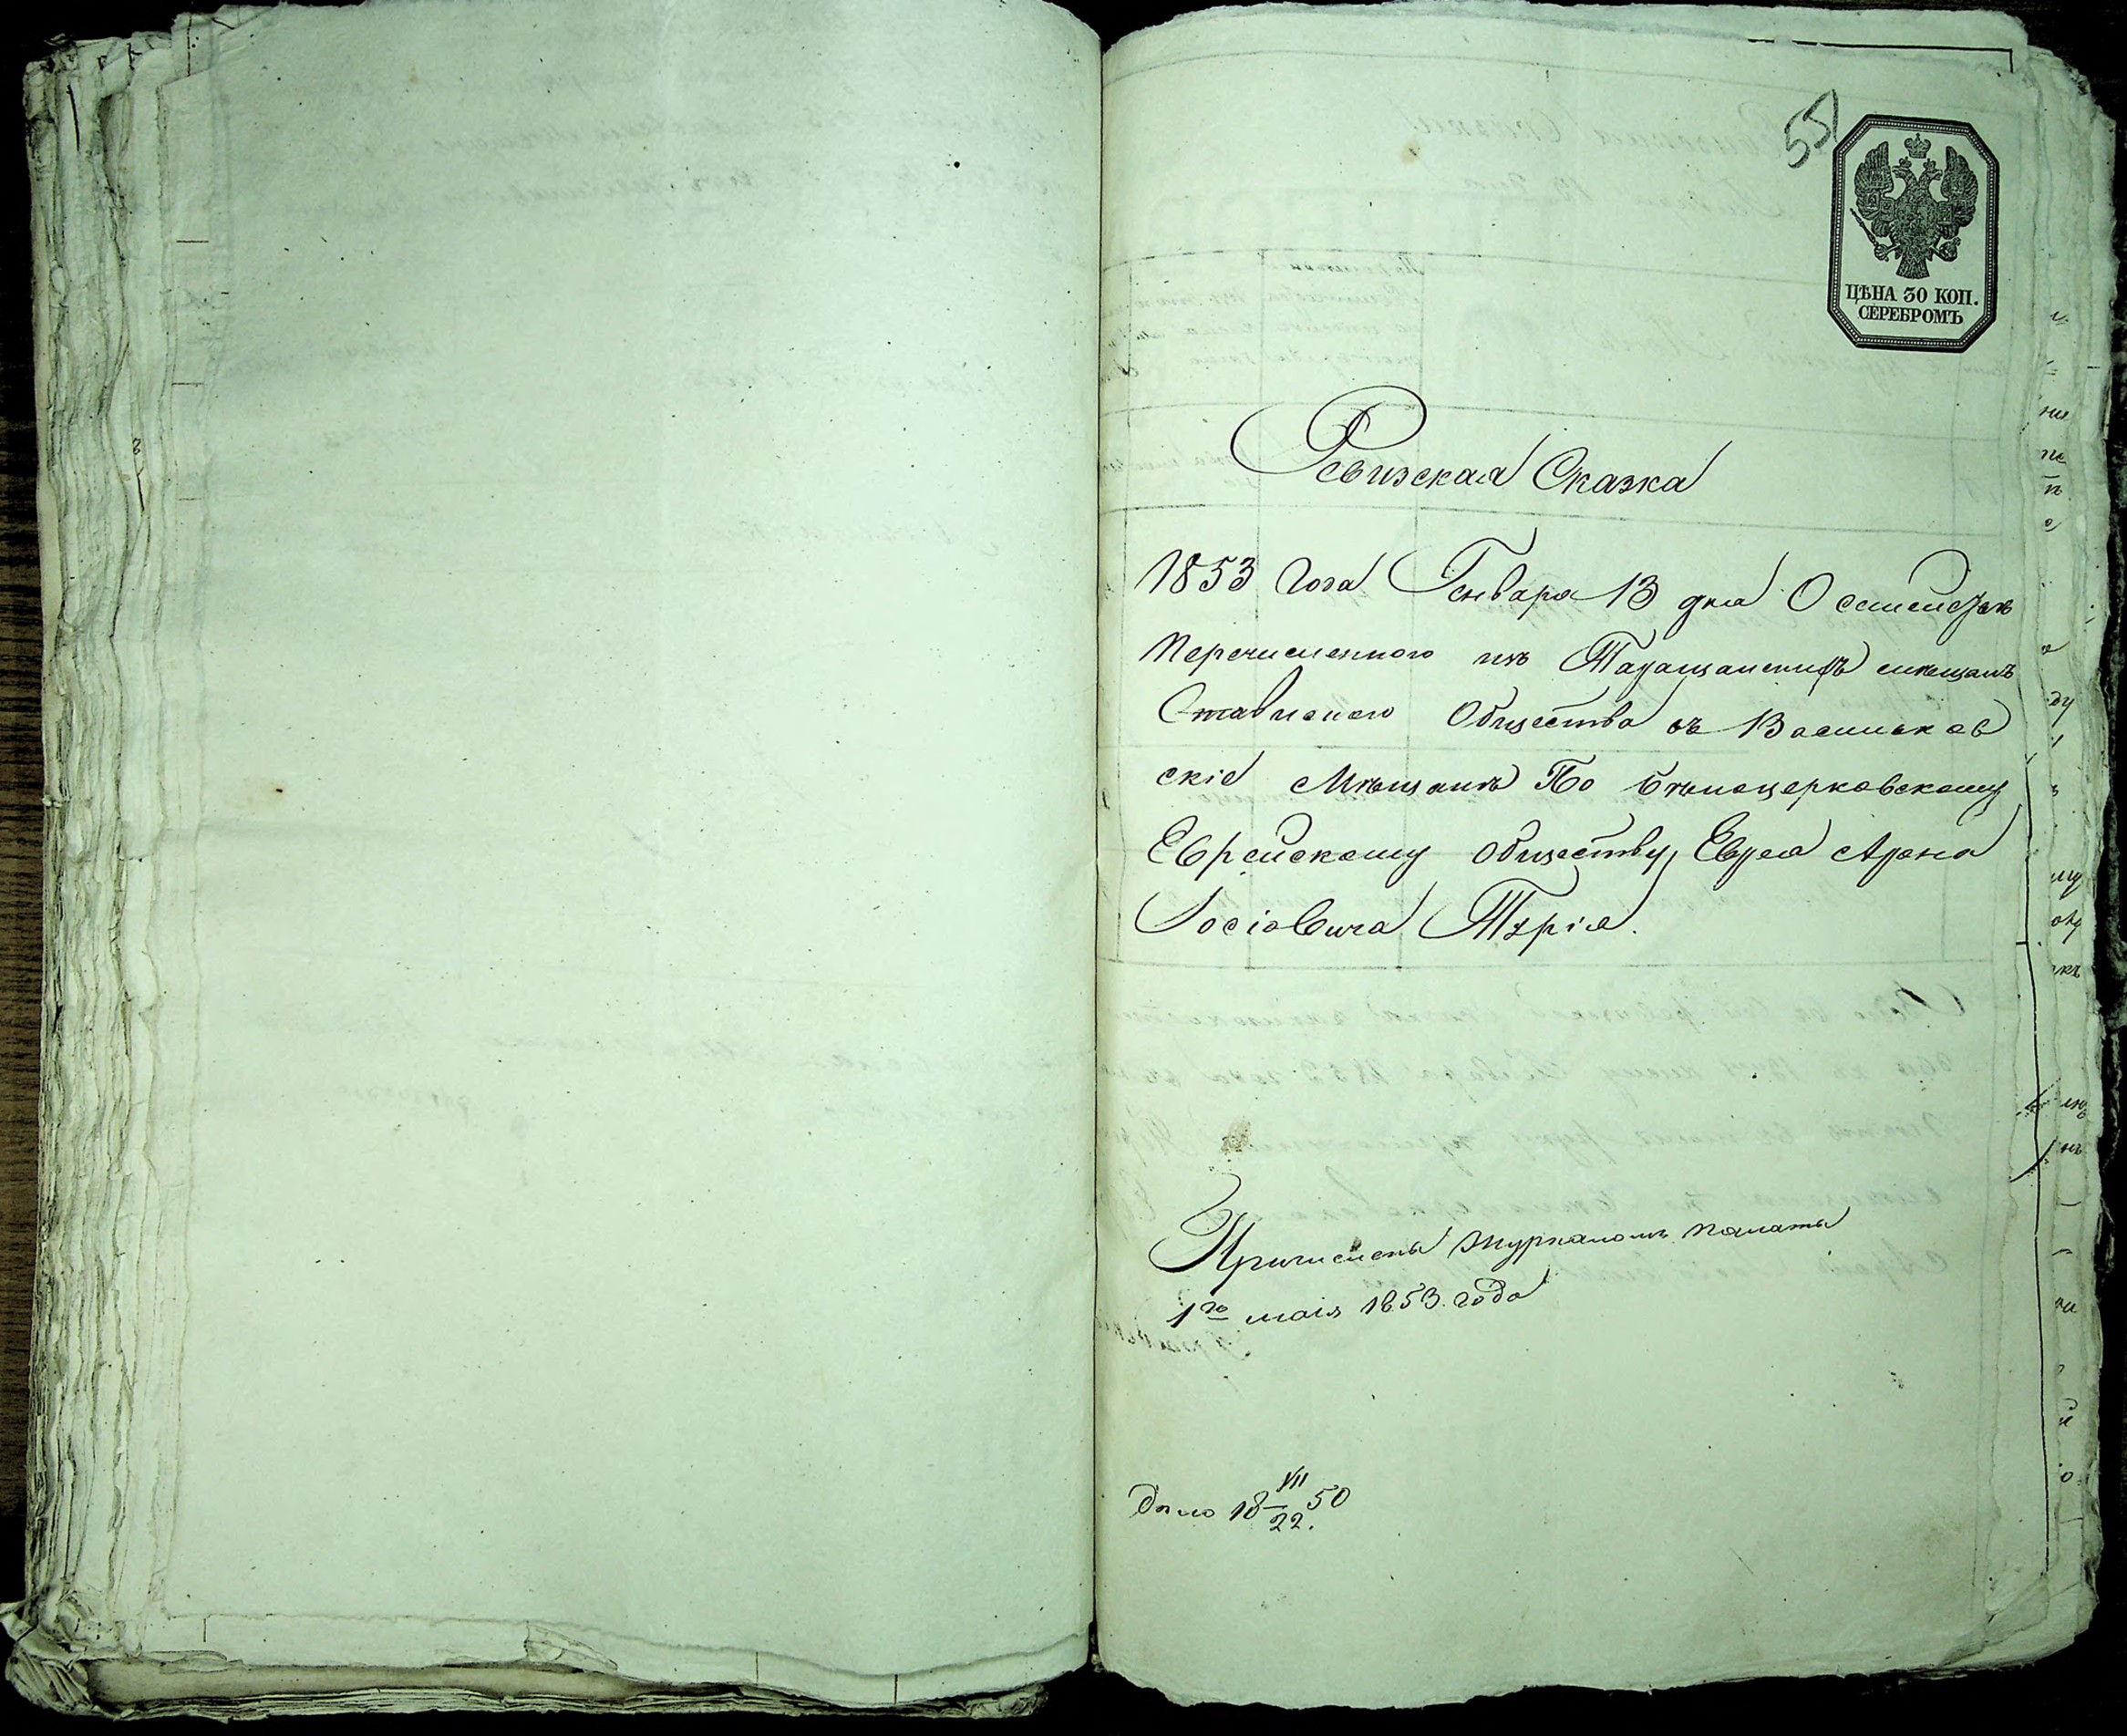 551
ЦѢНА 30 КОП.
СЕРЕБРОМЪ
Ревизская Сказка
1853 Года Генваря 13 дня О семействѣ
перечисленного изъ Таращанскихъ мещанъ
Ставиского Общества въ Васильков
скіе Мѣщане По Бѣлоцерковскому
Еврейскому обществу, Еврея Арона
Іосіовича
Причислены журналомъ палаты
1го маія 1853 года
Дѣло 18 VII/22. 50